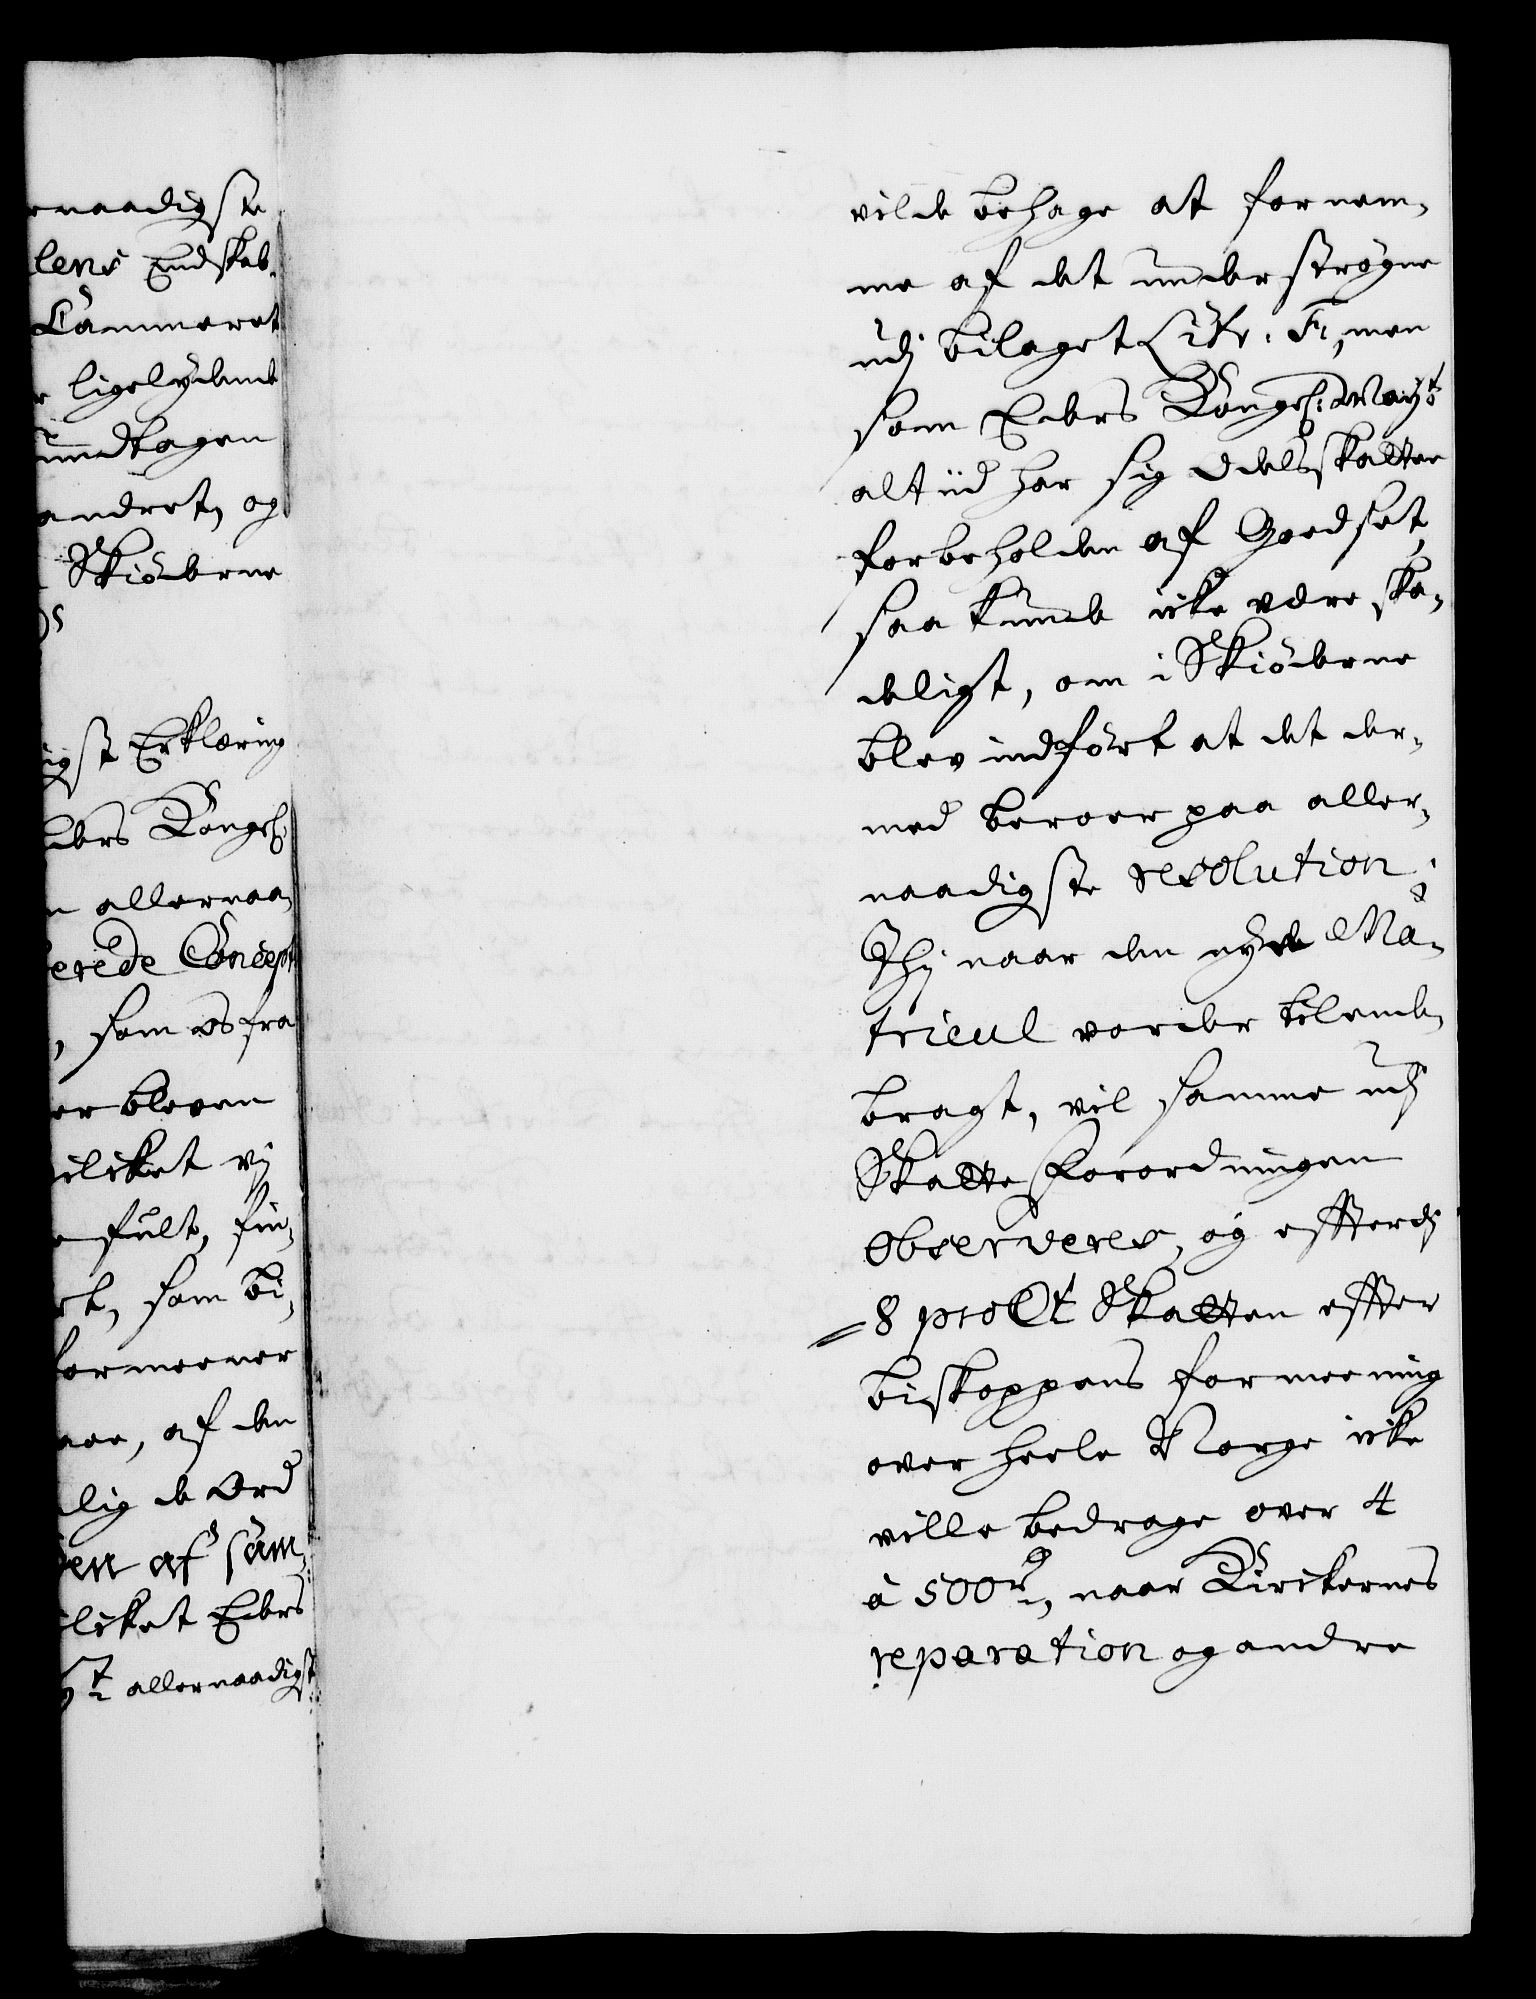 naadigste
lens Endskab,
Cammeret
ligelydende
undtagen
andret, og
Skiöderne
igst Erklæring
ders Kongel:
allernaa,
erede Concept
, som os fra
er bleven
ilcket vj
fult, fin,
rt, som bi,
formeener
, af den
lig de Ord
den af sam,
ilcket Eders
allernaadigst
vilde behage at fornem,
me af det underströgne
udj bilaget Litr: F, men
som Eders Kongel: May:t
altiid har sig Odelsskatter
forbeholden af Goedset,
saa kunde icke være ska,
deligt, om i Skiöderne
blev indfört at det der,
med beroer paa aller,
naadigste resolution;
Thj naar den nye Ma,
tricul vorder tilende,
bragt, vil samme udj
Skatte Forordningen
observeres, og efftersom
8 pro Ct Skatten effter
biskoppens formeening
over heele Norge icke
ville bedrage over 4
à 500 rd, naar Kirckernes
reparation og andre